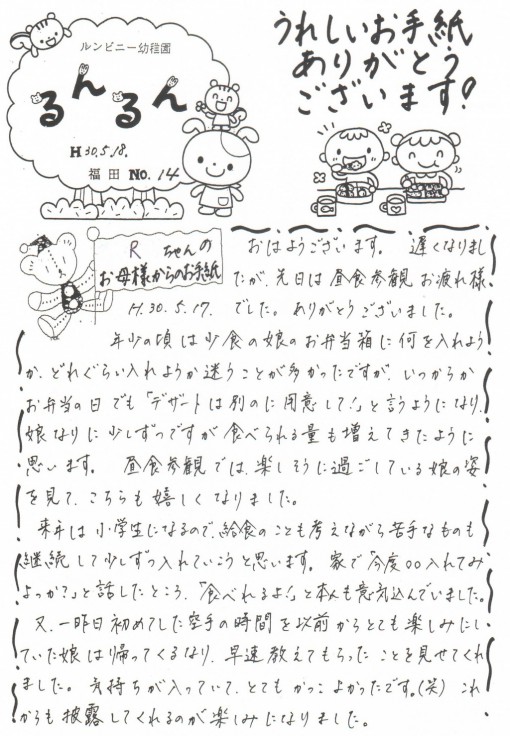 ルンビニー幼稚園
るんるん
H30.5.18.
福田 No.14
うれしいお手紙
ありがとう
ございます!
R ちゃんの
お母様からのお手紙
H.30.5.17.
おはようございます。 遅くなりまし
たが、先日は昼食参観お疲れ様
でした。ありがとうございました。
年少の頃は少食の娘のお弁当箱に何を入れよう
か、どれぐらい入れようか迷うことが多かったですが、いつからか
お弁当の日でも「デザートは別のに用意して!」と言うようになり、
娘なりに少しずつですが食べられる量も増えてきたように
思います。 昼食参観では、楽しそうに過ごしている娘の姿
を見て、こちらも嬉しくなりました。
来年は小学生になるので、給食のことも考えながら苦手なものも
継続して少しずつ入れていこうと思います。家で「今度○○入れてみ
よっか?」と話したところ、「食べれるよ!」と本人も意気込んでいました。
又、一昨日初めてした空手の時間を以前からとても楽しみにし
ていた娘は帰ってくるなり、早速教えてもらったことを見せてくれ
ました。気持ちが入っていて、とてもかっこよかったです。(笑) これ
からも披露してくれるのが楽しみになりました。